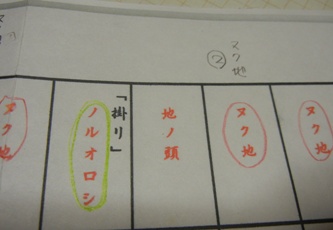 ヌク地
②
ヌク地
ヌク地
地ノ頭
「掛リ」
ノルオロシ
ヌク地